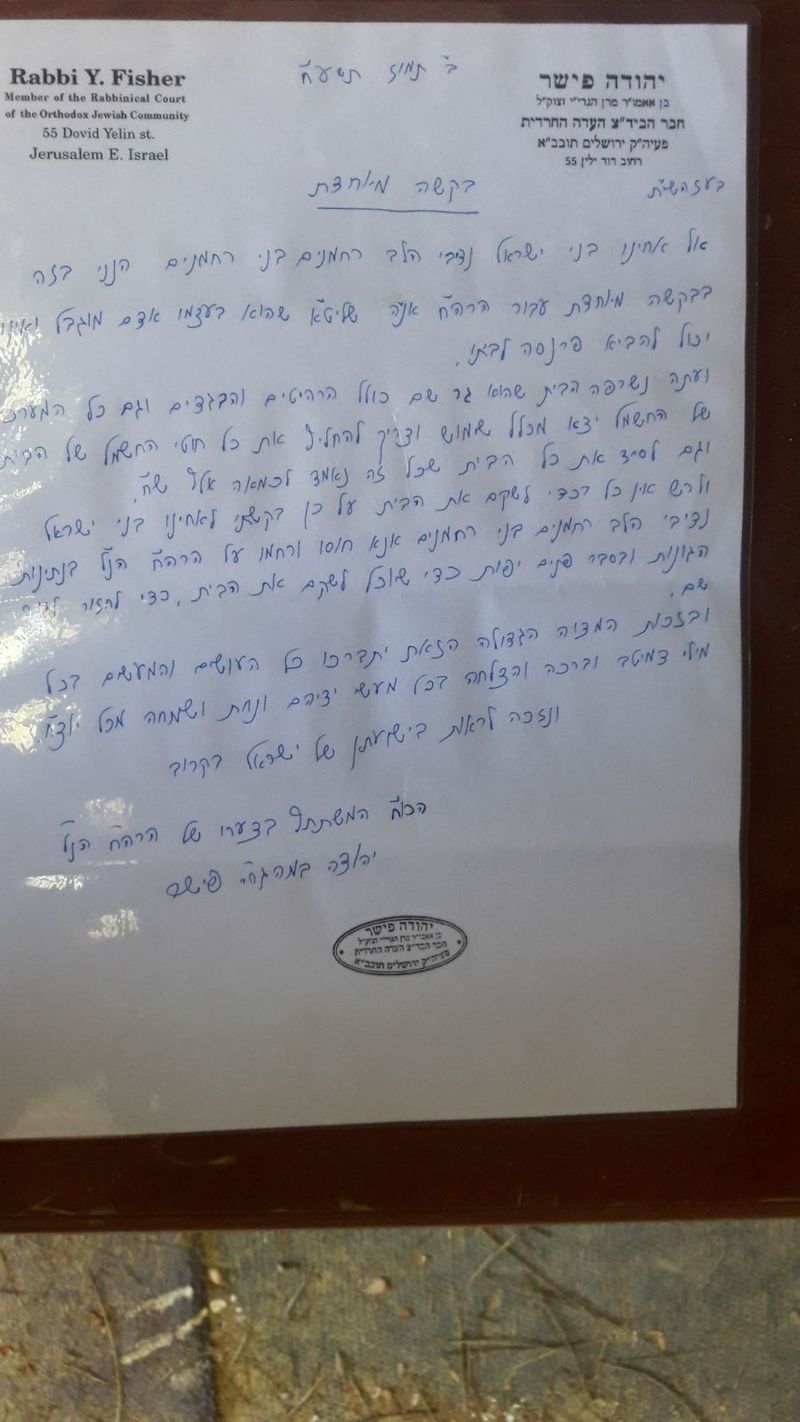 Rabbi Y. Fisher
Member of the Rabbinical Court
of the Orthodox Jewish Community
55 Dovid Yelin st.
Jerusalem E. Israel
ב' תמוז תשע"ח
יהודה פישר
בן אאמו"ר מרן הגרי"י זצוק"ל
חבר הביד"צ העדה החרדית
פעיה"ק ירושלים תובב"א
רחוב דוד ילין 55
בעזהשי"ת
בקשה מיוחדת
אל אחינו בני ישראל נדיבי הלב רחמנים בני רחמנים הנני בזה
בבקשה מיוחדת עבור הרה"ח שליט"א שהוא בעצמו אדם מוגבל ואינו
יכול להביא פרנסה לביתו.
ועתה נשרפה הבית שהוא גר שם כולל הרהיטים והבגדים וגם כל המערכת
של החשמל יצא מכלל שמוש וצריך להחליף את כל חוטי החשמל של הבית
וגם לסייד את כל הבית שכל זה נאמד לכמאה אלף ש"ח.
ולרש אין כל בכדי לשקם את הבית על כן בקשתי לאחינו בני ישראל
נדיבי הלב רחמנים בני רחמנים אנא חוסו ורחמו על הרה"ח הנ"ל בנתינות
הגונות ובסבר פנים יפות כדי שיוכל לשקם את הבית, כדי לחזור לגור
שם.
ובזכות המצוה הגדולה הזאת יתברכו כל העושים והמעשים בכל
מילי דמיטב וברכה והצלחה בכל מעשי ידיהם ונחת ושמחה מכל יוצ"ח.
ונזכה לראות בישועתן של ישראל בקרוב
הכו"ח המשתתף בצערו של הרה"ח הנ"ל
יהודה במהגרי"י פישר
יהודה פישר
בן אאמו"ר מרן הגרי"י זצוק"ל
חבר הביד"צ העדה החרדית
פעיה"ק ירושלים תובב"א